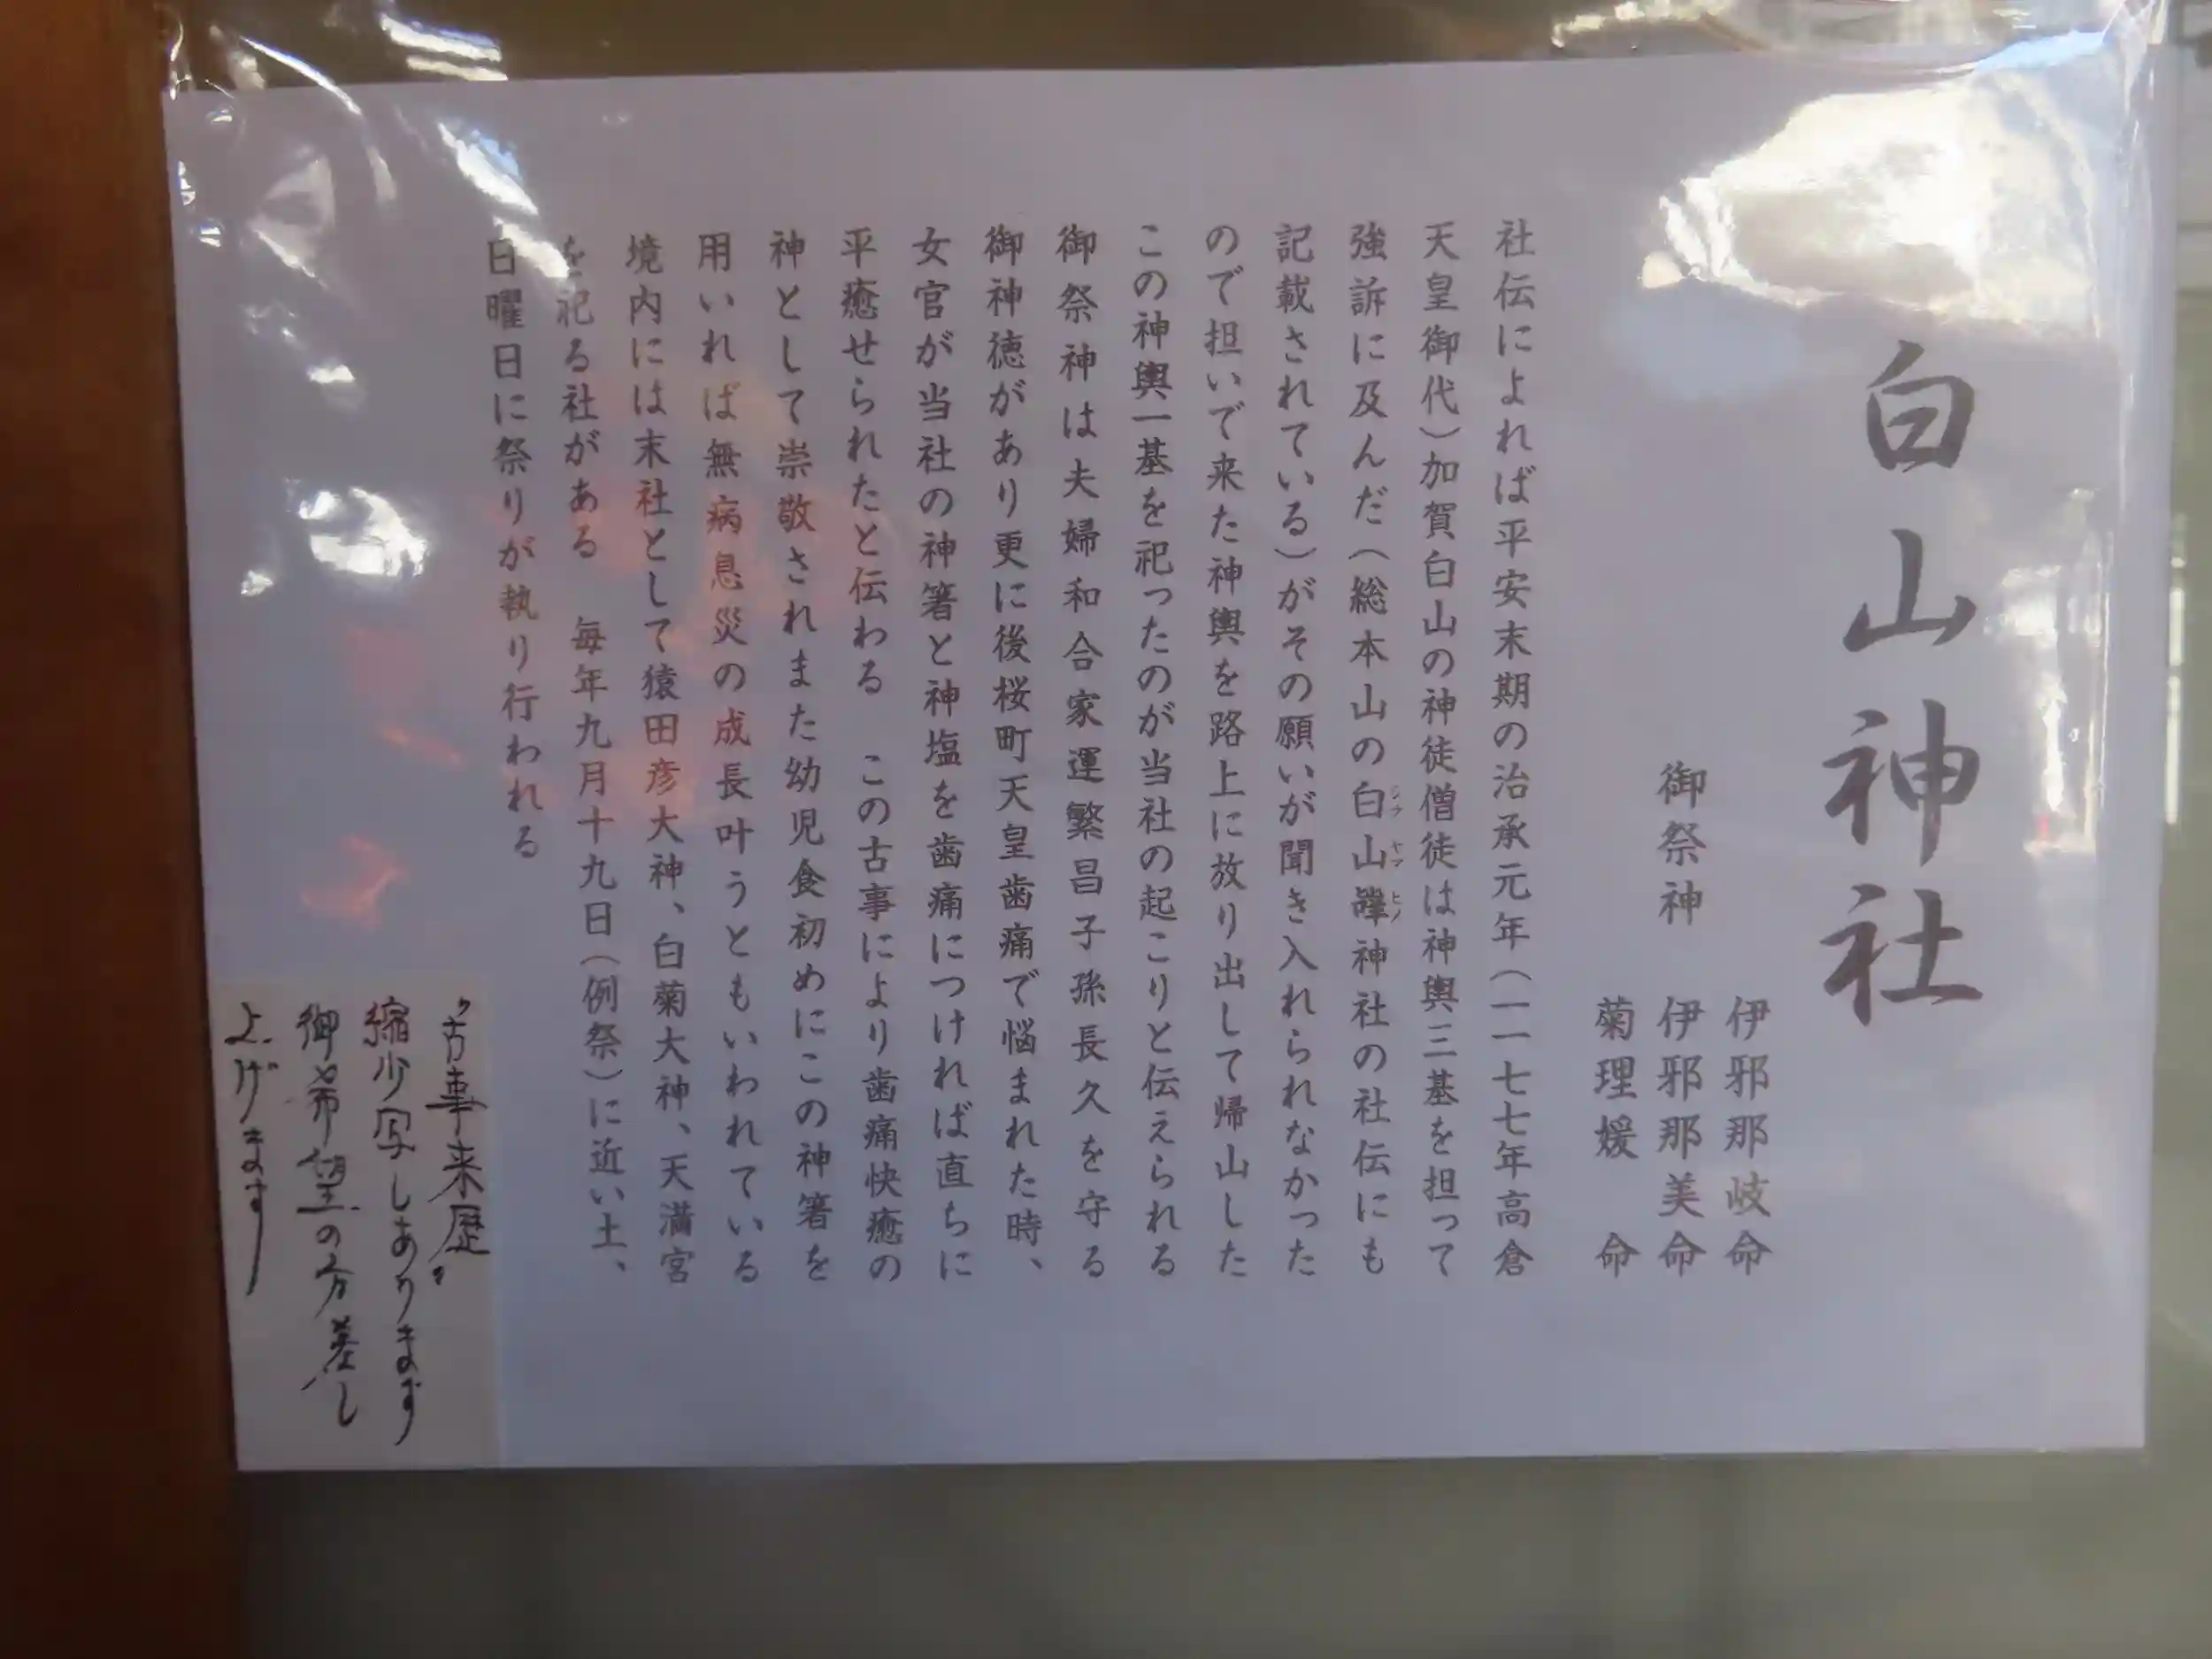 白山神社
御祭神
伊邪那岐命
伊邪那美命
菊理媛　命
社伝によれば平安末期の治承元年（一一七七年高倉
天皇御代）加賀白山の神徒僧徒は神輿三基を担って
強訴に及んだ（総本山の白山 神社の社伝にも
記載されている）がその願いが聞き入れられなかった
ので担いで来た神輿を路上に放り出して帰山した
この神輿一基を祀ったのが当社の起こりと伝えられる
御祭神は夫婦和合家運繁昌子孫長久を守る
御神徳があり更に後桜町天皇歯痛で悩まれた時、
女官が当社の神箸と神塩を歯痛につければ直ちに
平癒せられたと伝わる　この古事により歯痛快癒の
神として崇敬されまた幼児食初めにこの神箸を
用いれば無病息災の成長叶うともいわれている
境内には末社として猿田彦大神、白菊大神、天満宮
を祀る社がある　毎年九月十九日（例祭）に近い土、
日曜日に祭りが執り行われる
〝古事来歴〟
縮少写しあります
御希望の方差し
上げます